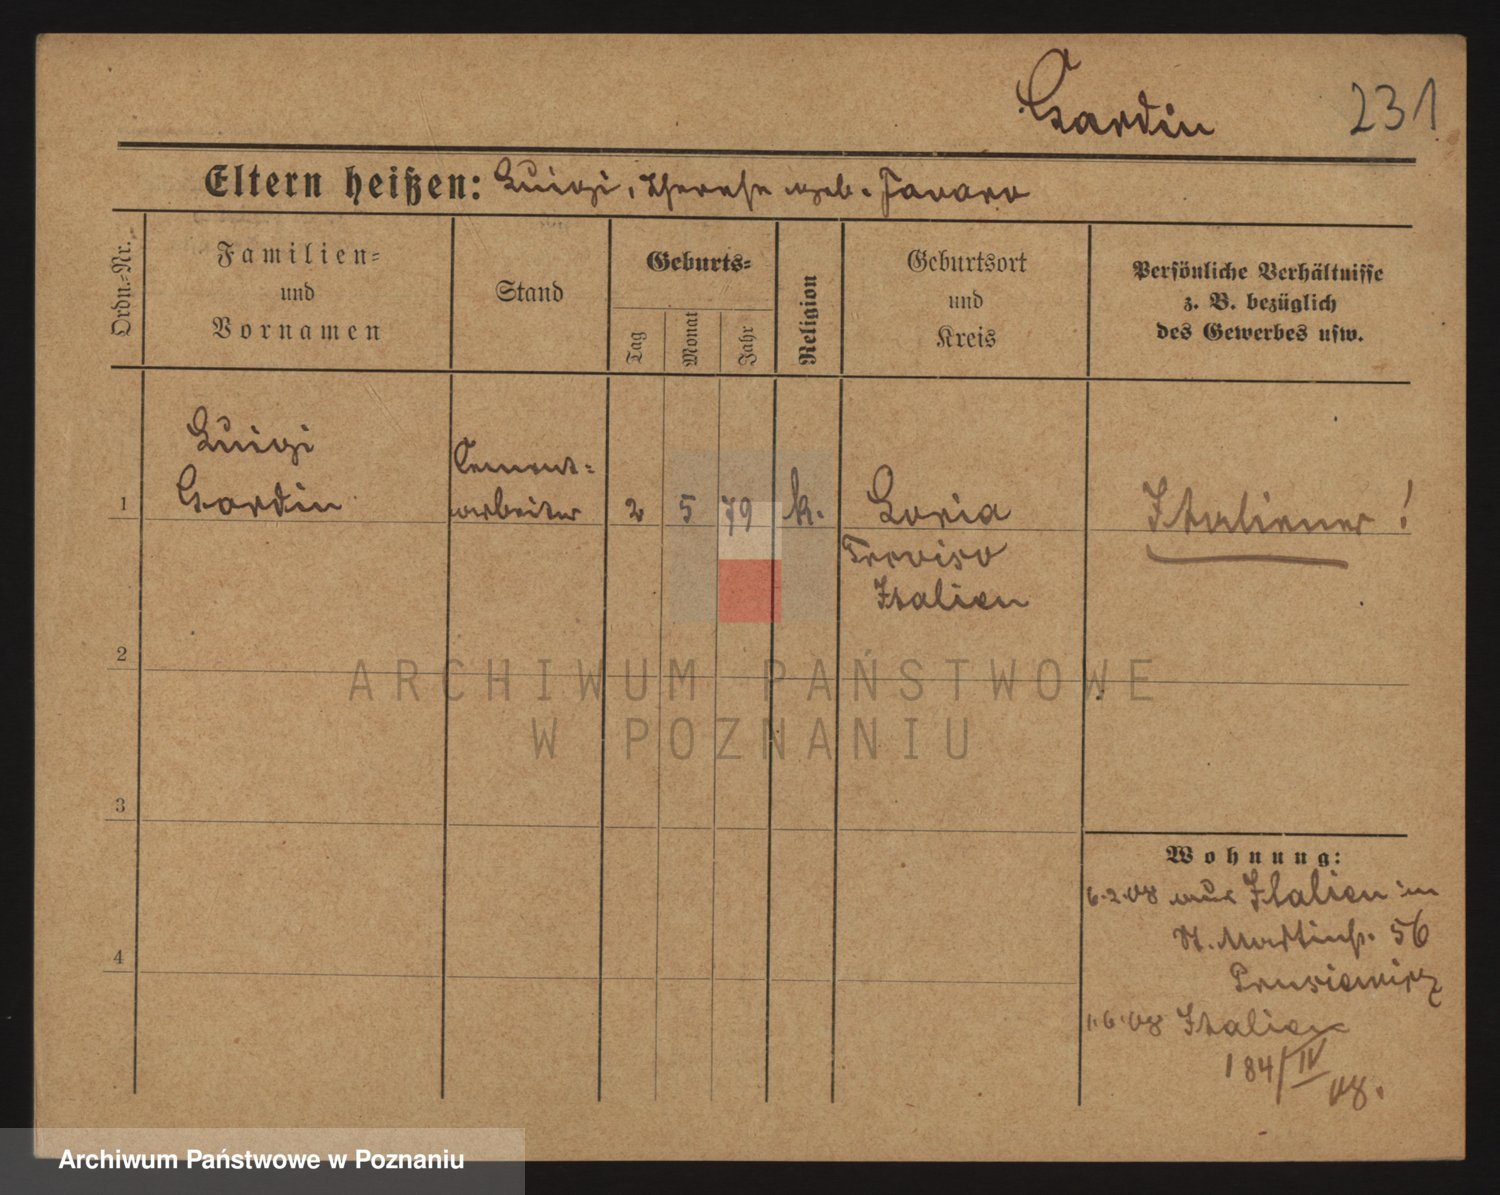 Gardin
231
Eltern heißen: Luigi, Therese geb. Favaro
Ordn.-Nr.
Familien-
und
Vornamen
Stand
Geburts-
Tag
Monat
Jahr
Religion
Geburtsort
und
Kreis
Persönliche Verhältnisse
z. B. bezüglich
des Gewerbes usw.
1
Luigi
Gardin
Cement-
arbeiter
2
5
79
k.
Loria
Treviso
Italien
Italiener!
2
3
4
ARCHIWUM PAŃSTWOWE
W POZNANIU
Wohnung:
6.2.08 aus Italien in
St. Martinstr. 56
1.6.08 Italien
184/IV
08.
Archiwum Państwowe w Poznaniu